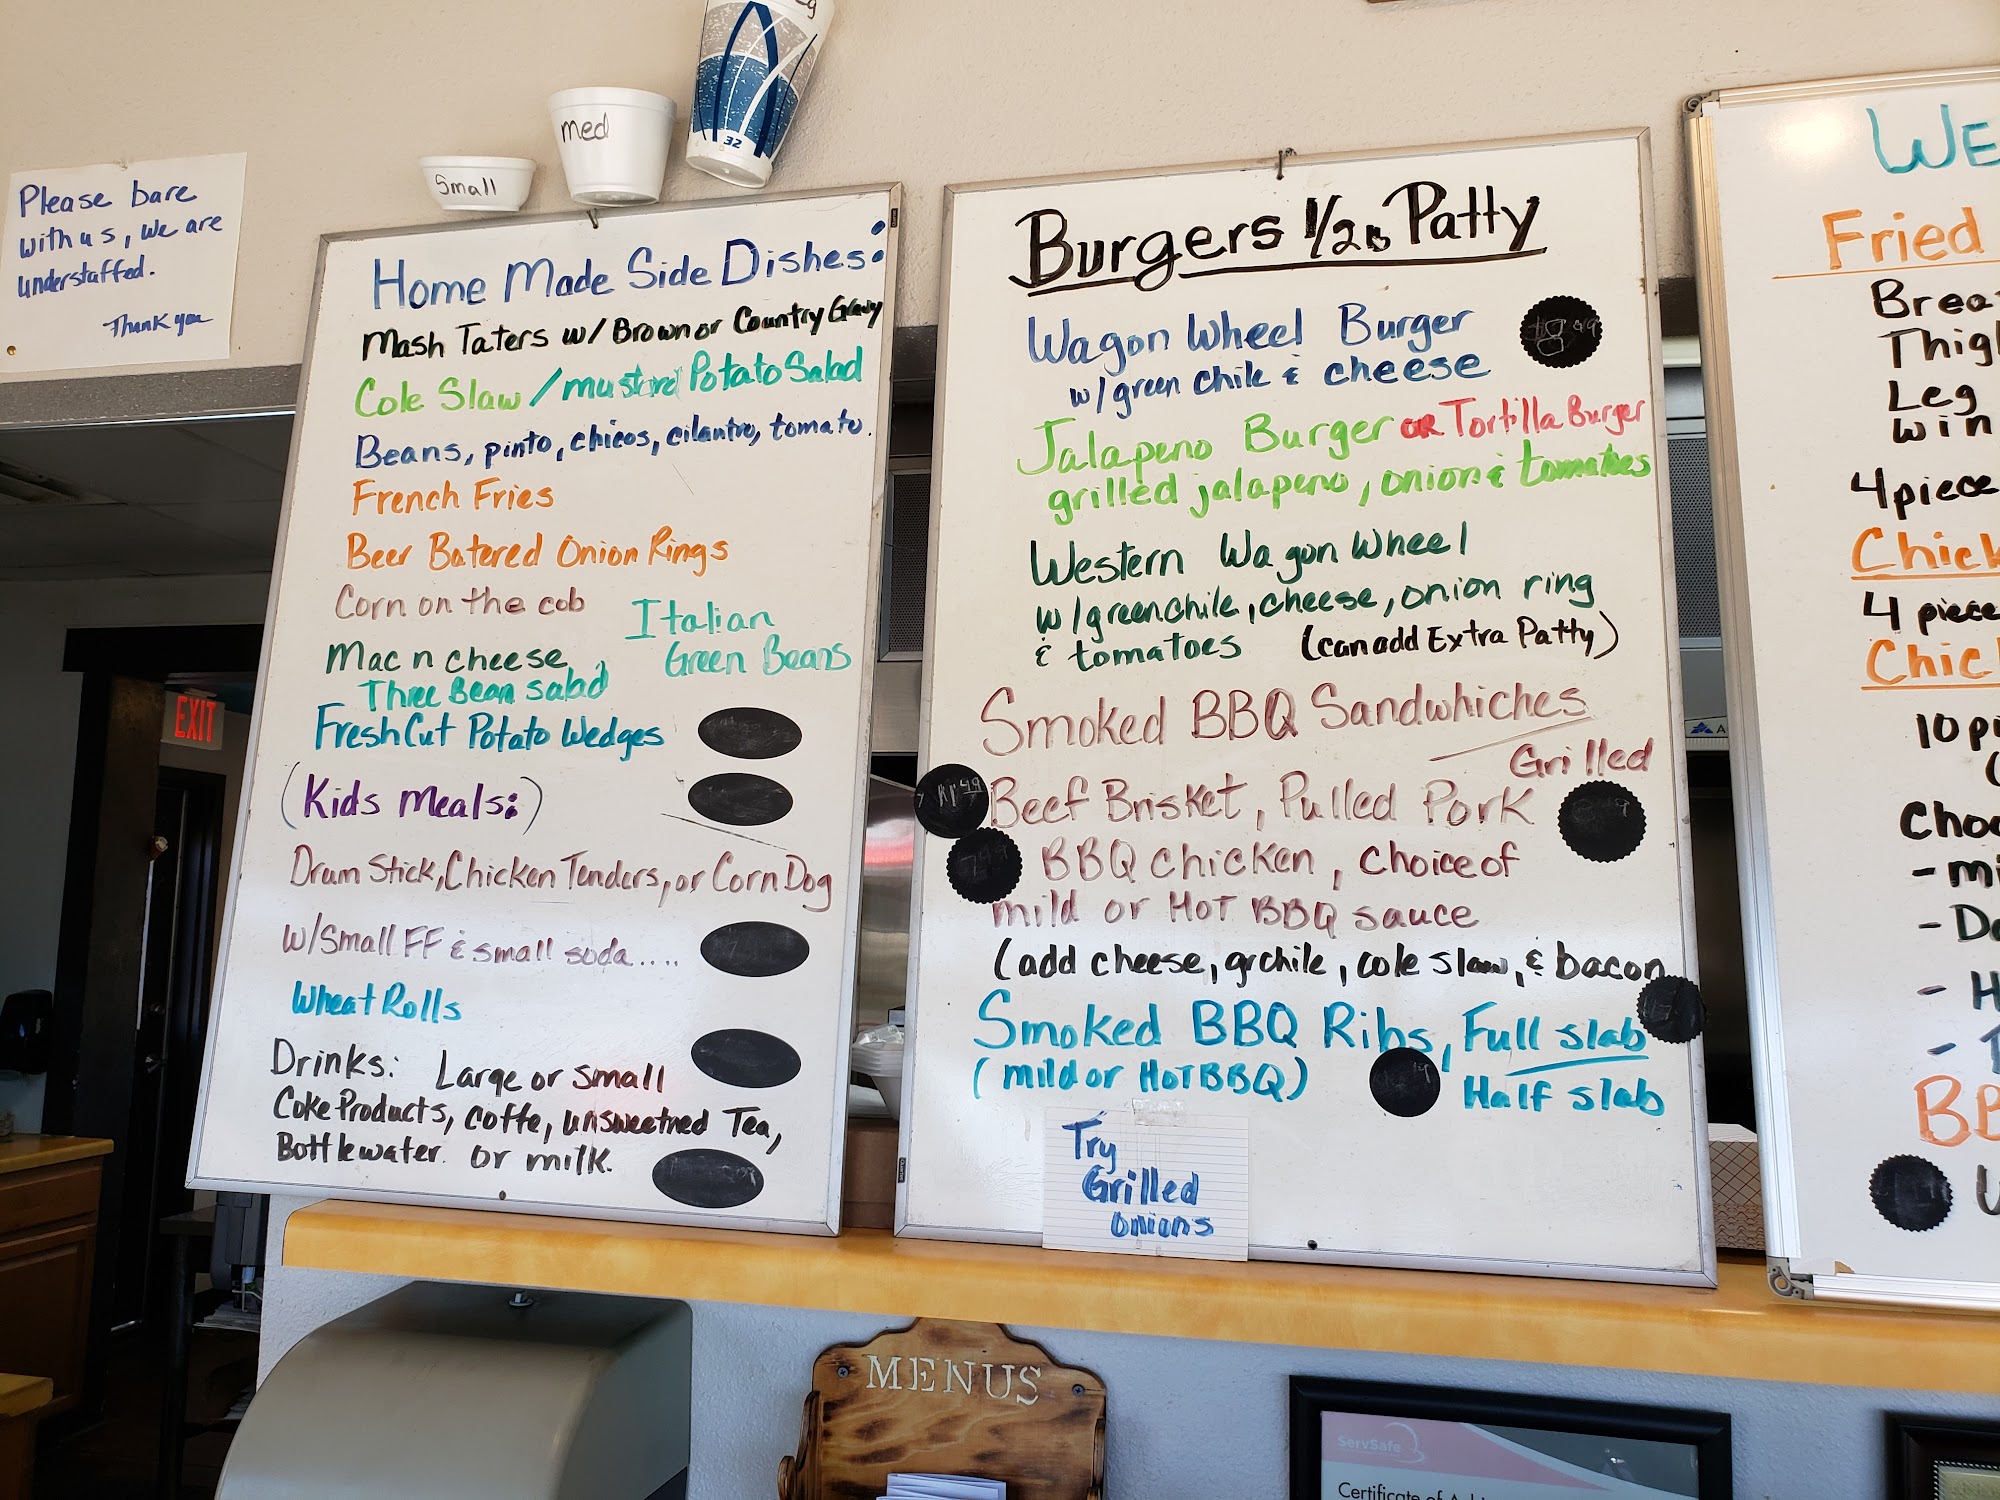 Please bare
with us, we are
understaffed.
Thank you
Small
med
32
EXIT
Home Made Side Dishes:
Mash Taters w/ Brown or Country Gravy
Cole Slaw / mustard Potato Salad
Beans, pinto, chicos, cilantro, tomato.
French Fries
Beer Batered Onion Rings
Corn on the cob
Italian
Green Beans
Mac n cheese
Three Bean salad
Fresh Cut Potato Wedges
(Kids Meals:)
Drum Stick, Chicken Tenders, or Corn Dog
w/Small FF & small soda....
Wheat Rolls
Drinks: Large or small
Coke Products, coffe, unsweetned Tea,
Bottlewater. or milk.
Burgers 1/2 lb Patty
Wagon Wheel Burger
w/green chile & cheese
Jalapeno Burger OR Tortilla Burger
grilled jalapeno, onion & tomatoes
Western Wagon Wheel
w/greenchile, cheese, onion ring
& tomatoes (can add Extra Patty)
Smoked BBQ Sandwhiches
Grilled
Beef Brisket, Pulled Pork
BBQ chicken, choice of
mild or HOT BBQ sauce
(add cheese, gr chile, cole slaw, & bacon
Smoked BBQ Ribs, Full slab
(mild or HOT BBQ) Half slab
Try
Grilled
onions
WE
Fried
4 piece
4 piece
- mi
BB
MENUS
ServSafe
Certificate of